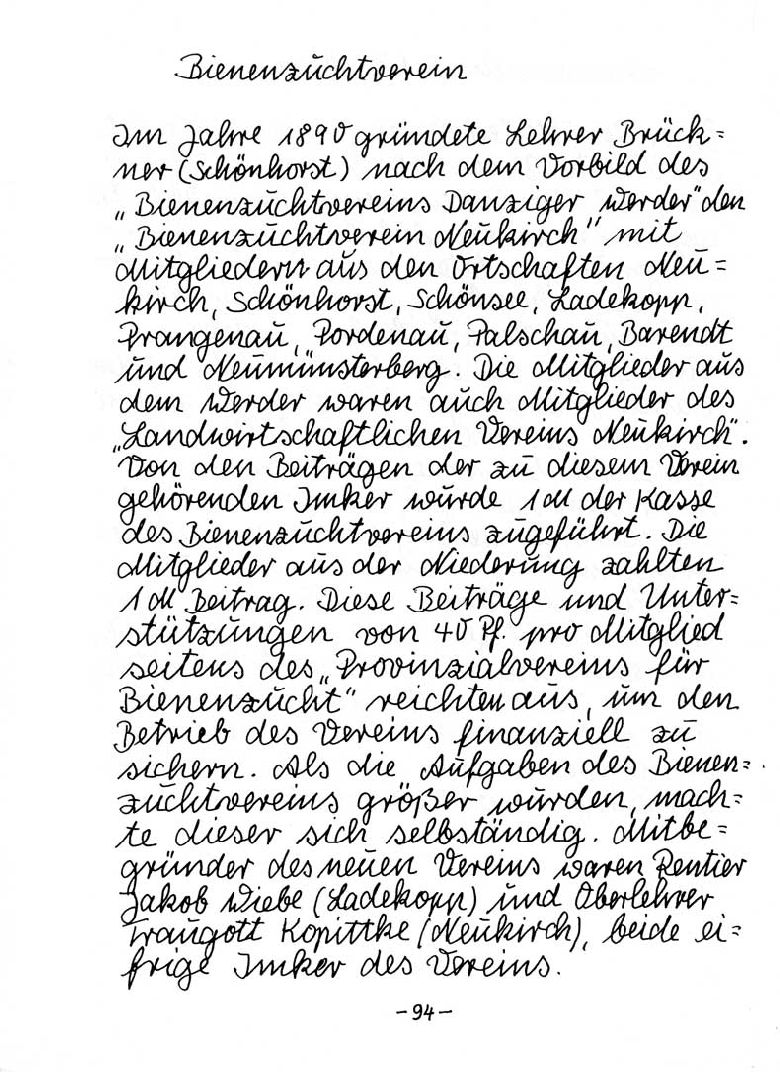 Bienenzuchtverein
Im Jahre 1890 gründete Lehrer Brück=
ner (Schönhorst) nach dem Vorbild des
„Bienenzuchtvereins Danziger Werder" den
„Bienenzuchtverein Neukirch" mit
Mitgliedern aus den Ortschaften Neu=
kirch, Schönhorst, Schönsee, Ladekopp,
Prangenau, Pordenau, Palschau, Barendt
und Neumünsterberg. Die Mitglieder aus
dem Werder waren auch Mitglieder des
„Landwirtschaftlichen Vereins Neukirch".
Von den Beiträgen der zu diesem Verein
gehörenden Imker wurde 1 M der Kasse
des Bienenzuchtvereins zugeführt. Die
Mitglieder aus der Niederung zahlten
1 M Beitrag. Diese Beiträge und Unter=
stützungen von 40 Pf. pro Mitglied
seitens des „Provinzialvereins für
Bienenzucht" reichten aus, um den
Betrieb des Vereins finanziell zu
sichern. Als die Aufgaben des Bienen=
zuchtvereins größer wurden, mach=
te dieser sich selbständig. Mitbe=
gründer des neuen Vereins waren Rentier
Jakob Wiebe (Ladekopp) und Oberlehrer
Traugott Kopittke (Neukirch), beide ei=
frige Imker des Vereins.
-94-